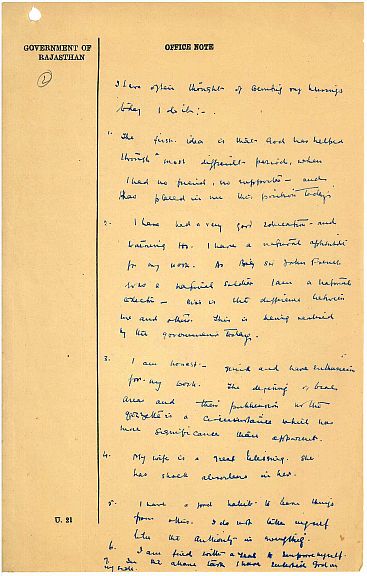 GOVERNMENT OF
RAJASTHAN
OFFICE NOTE
2
I have often thought of counting my blessings
today I do it :-
1. The first idea is that God has helped
through a most difficult period, when
I had no friend, no supporter - and
has placed in me this position today.
2. I have had a very good education - and
training too. I have a natural aptitude
for my work. As Sir John French
was a natural soldier I am a natural
- this is the difference between
me and others. This is being realised
by the government today.
3. I am honest - and have enthusiasm
for my work. The of
area and their publication in the
gazette is a circumstance which has
more significance than apparent.
4. My wife is a great blessing. She
has in her.
5. I have a good habit to learn things
from others. I do not take myself
like the authority in everything.
6. I am fired with a zeal to improve myself.
7. In the above task I have God as
my
U. 21